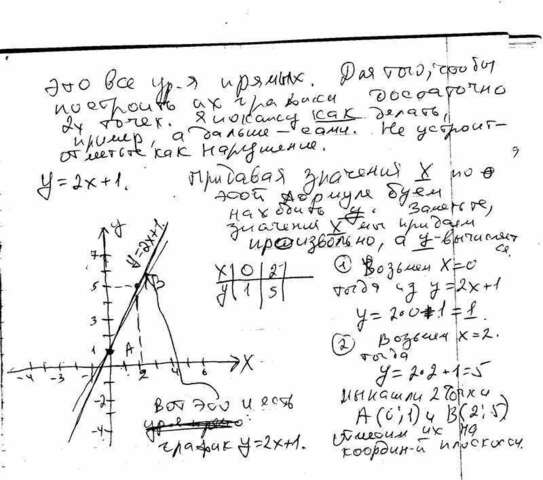 Это все ур-я прямых. Для того, чтобы
построить их графики достаточно
2х точек. Я покажу как делать,
пример, а дальше - сами. Не устроит-
отметьте как нарушение.
y=2x+1. Придавая значения X по
этой формуле будем
находить y. Заметьте,
значения X мы придаем
произвольно, а y-вычисляется
y
y=2x+1
7
5
3
1
A
B
-4 -2 2 4 6 X
-2
-4
X 0 2
y 1 5
Вот это и есть
график y=2x+1.
1 Возьмем X=0
тогда из y=2x+1
y=2·0+1=1.
2 Возьмем x=2.
тогда
y=2·2+1=5
мы нашли 2 точки
A(0;1) и B(2;5)
Отметим их на
координ-й плоскости.